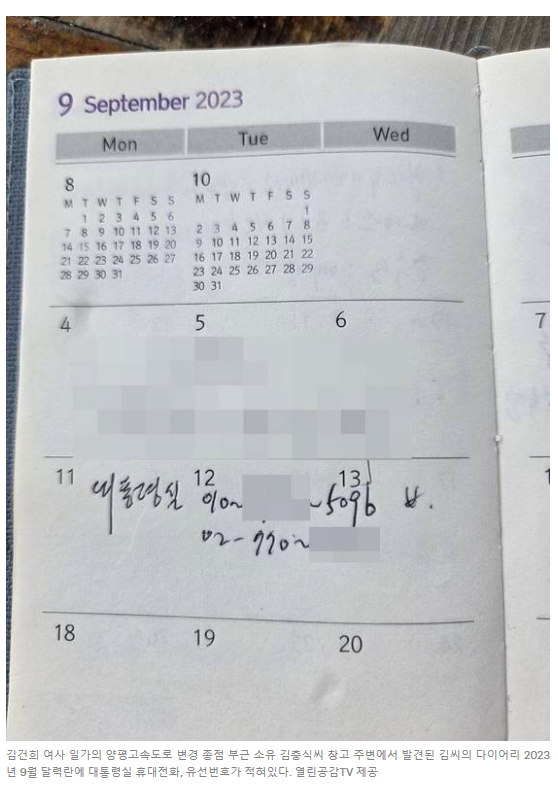 9 September 2023
Mon Tue Wed
8
M T W T F S S
1 2 3 4 5 6
7 8 9 10 11 12 13
14 15 16 17 18 19 20
21 22 23 24 25 26 27
28 29 30 31
10
M T W T F S S
1
2 3 4 5 6 7 8
9 10 11 12 13 14 15
16 17 18 19 20 21 22
23 24 25 26 27 28 29
30 31
4 5 6 7
11 12 13
대통령실 010~ ~5096
02-
18 19 20
김건희 여사 일가의 양평고속도로 변경 종점 부근 소유 김충식씨 창고 주변에서 발견된 김씨의 다이어리 2023
년 9월 달력란에 대통령실 휴대전화, 유선번호가 적혀있다. 열린공감TV 제공